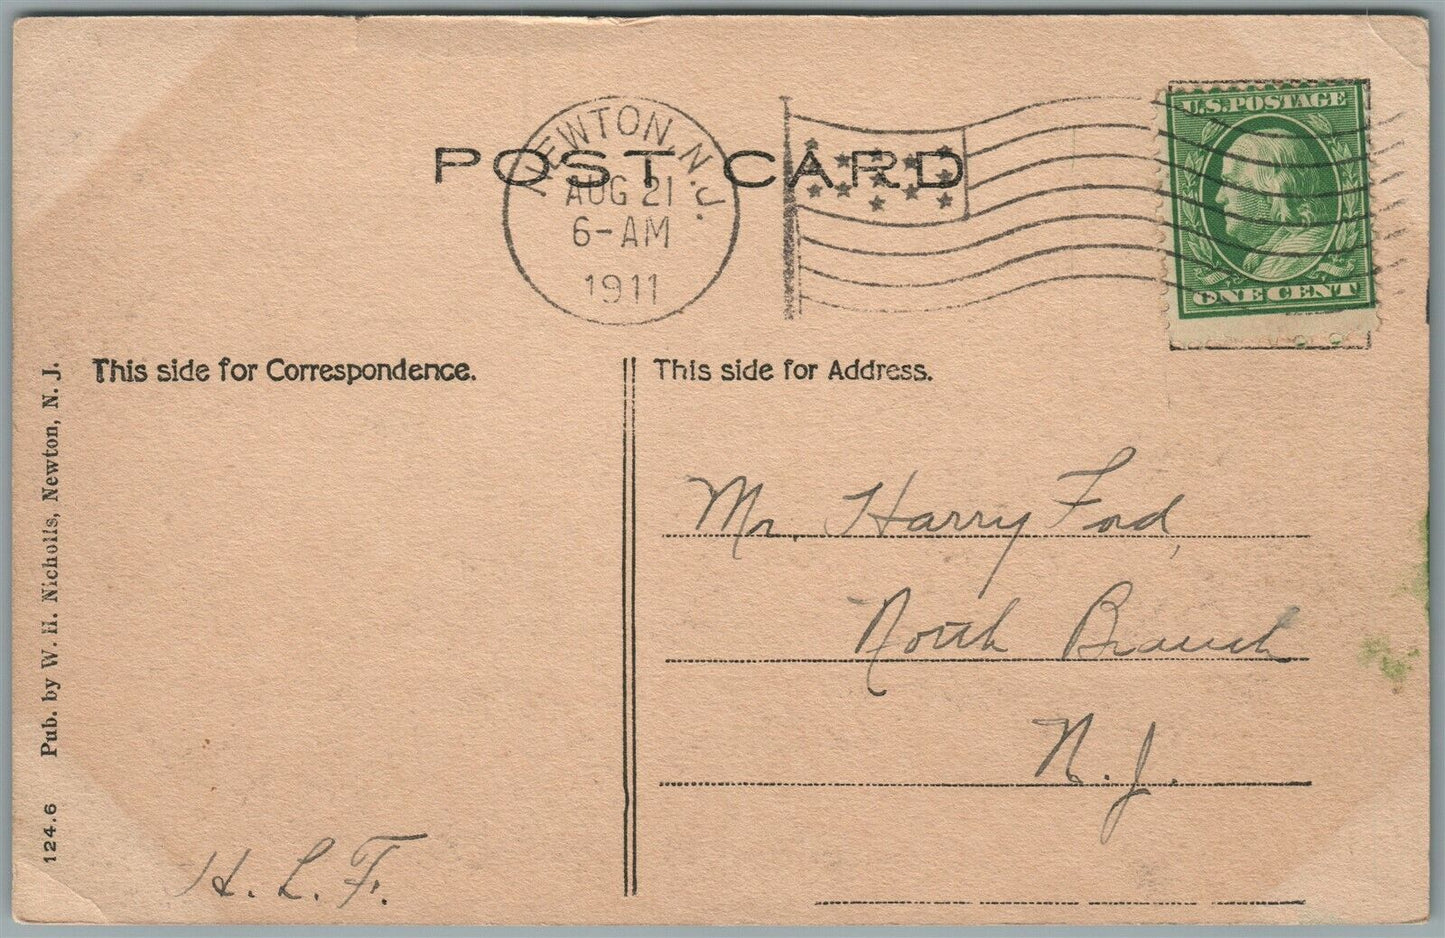 U.S. POSTAGE
ONE CENT
NEWTON, N.J.
AUG 21
6-AM
1911
POST CARD
This side for Correspondence.
This side for Address.
Mr. Harry Ford,
North Branch
N. J.
H. L. F.
124.6 Pub. by W. H. Nicholls, Newton, N. J.